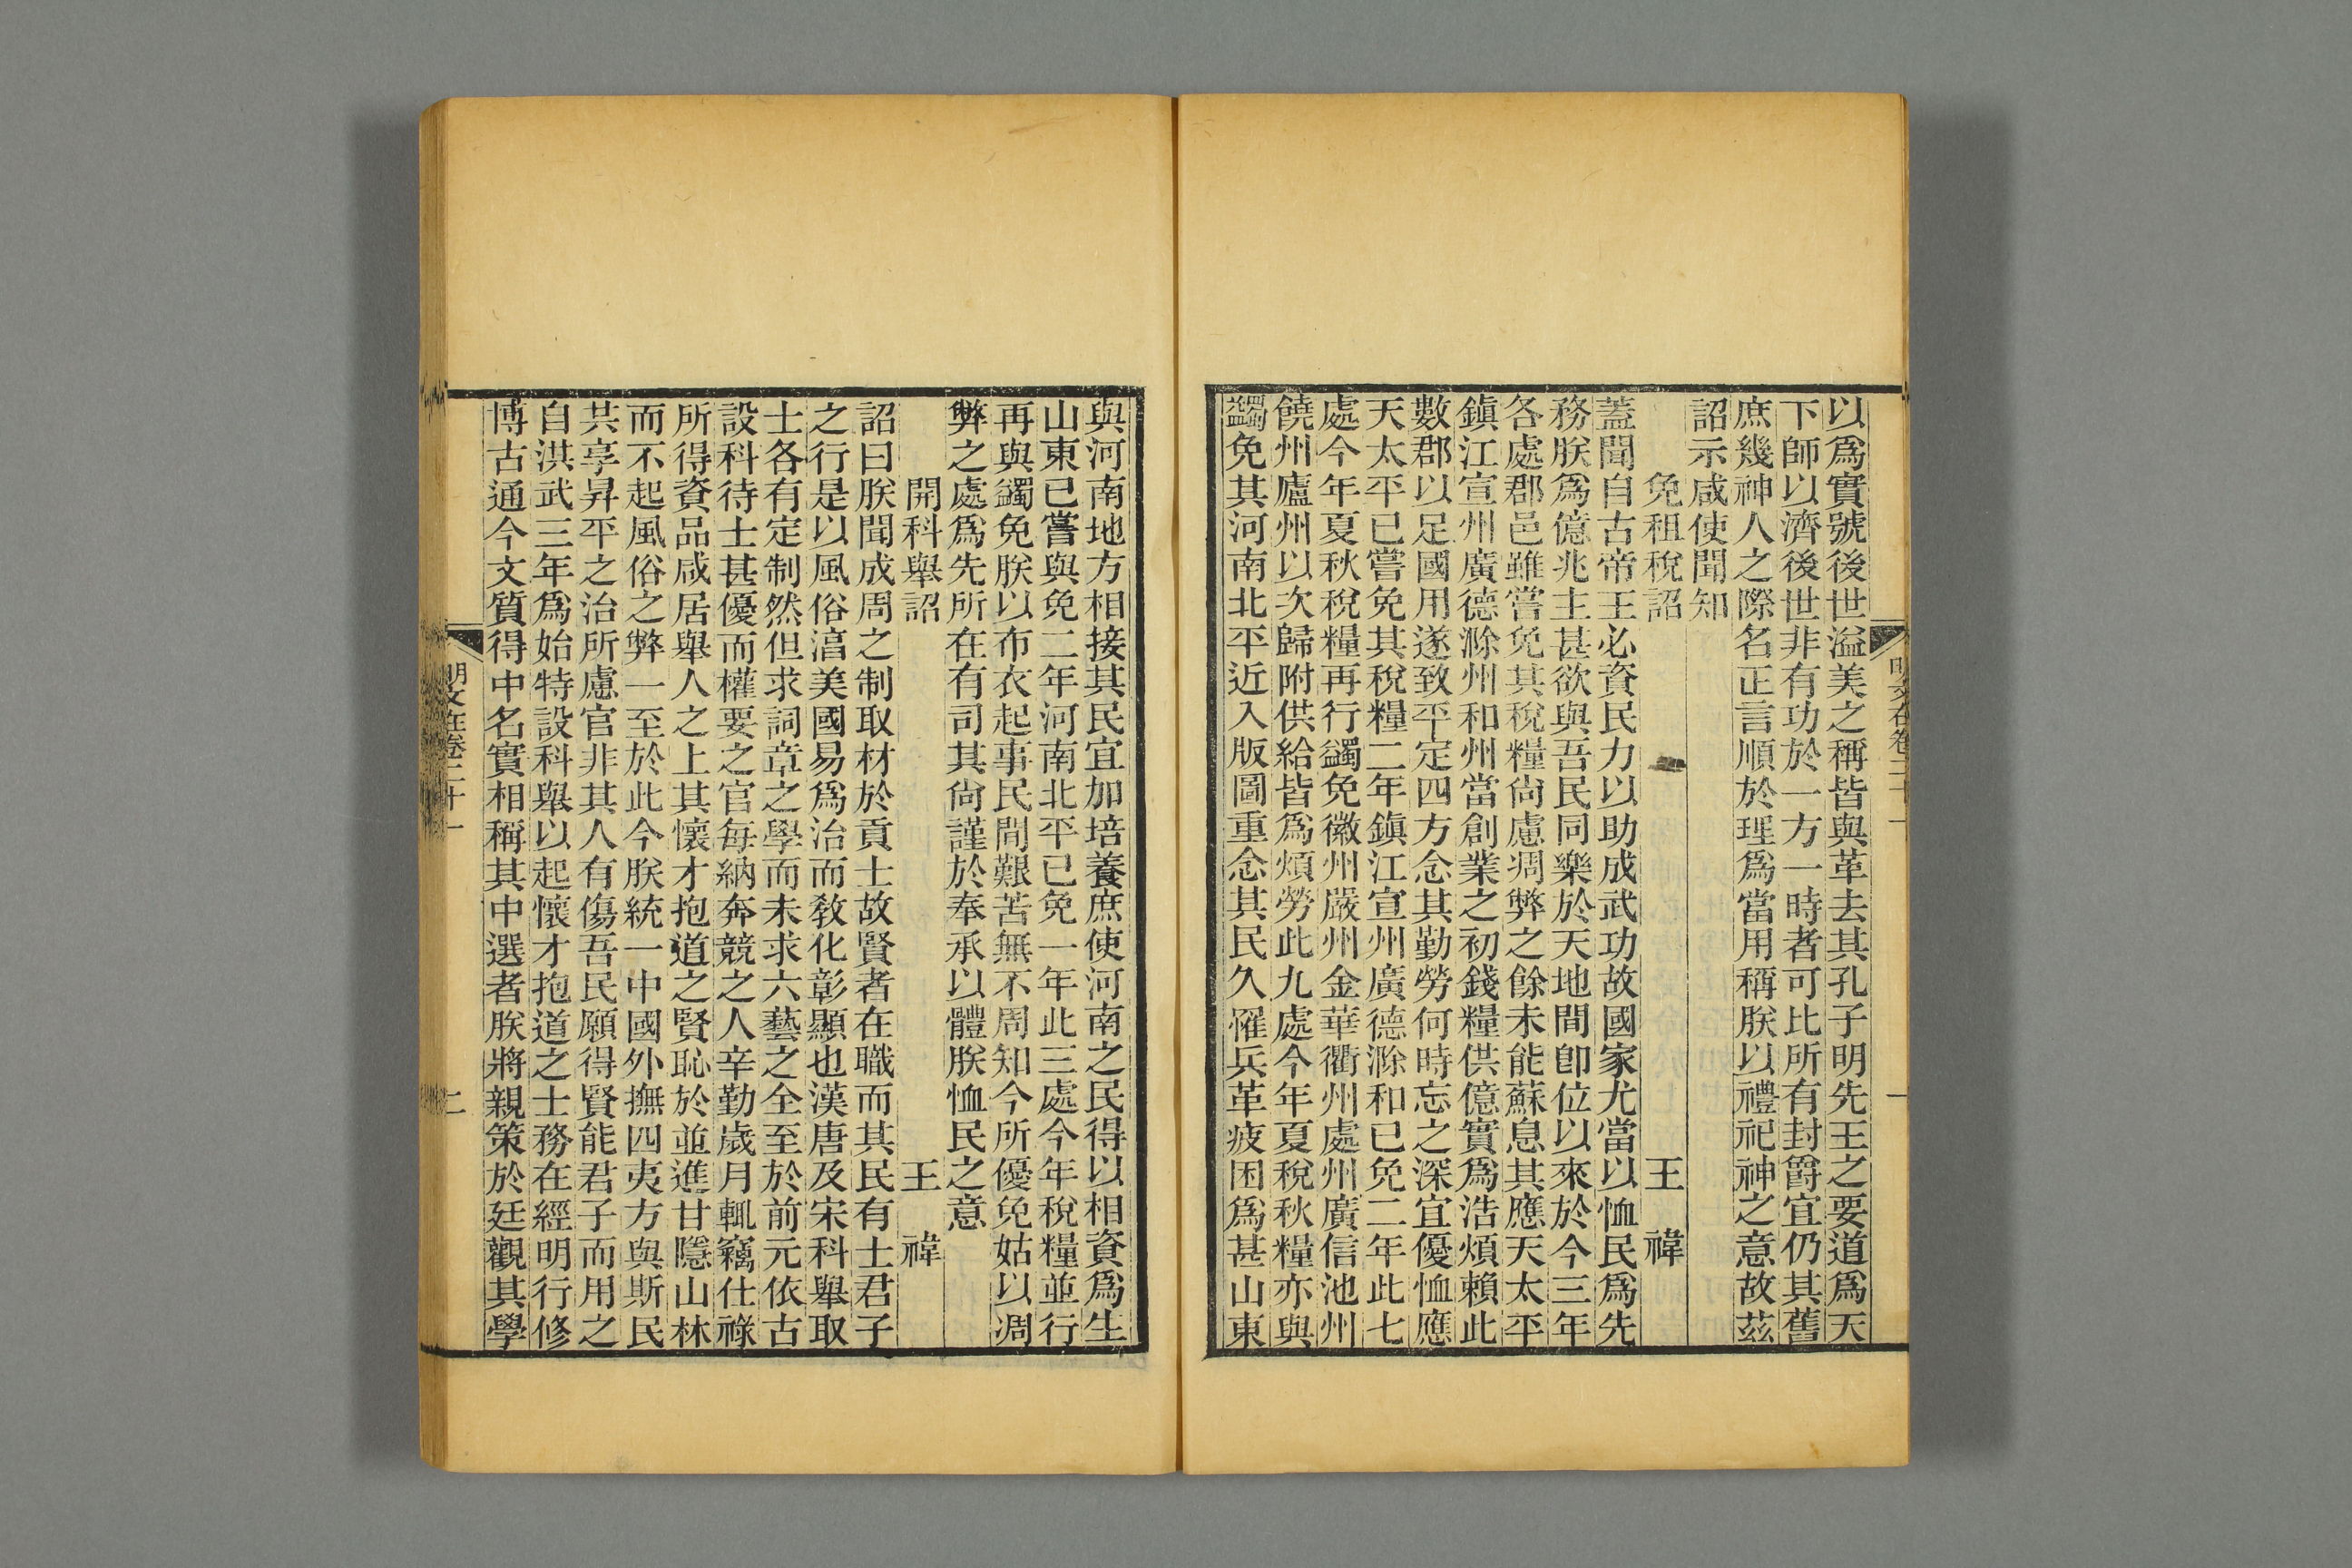 以爲實號後世溢美之稱皆與革去其孔子明先王之要道爲天
下師以濟後世非有功於一方一時者可比所有封爵宜仍其舊
庶幾神人之際名正言順於理爲當用稱朕以禮祀神之意故茲
詔示咸使聞知
免租稅詔 王禕
蓋聞自古帝王必資民力以助成武功故國家尤當以恤民爲先
務朕爲億兆主甚欲與吾民同樂於天地間卽位以來於今三年
各處郡邑雖嘗免其稅糧尙慮凋弊之餘未能蘇息其應天太平
鎭江宣州廣德滁州和州當創業之初錢糧供億實爲浩煩賴此
數郡以足國用遂致平定四方念其勤勞何時忘之深宜優恤應
天太平已嘗免其稅糧二年鎭江宣州廣德滁和已免二年此七
處今年夏秋稅糧再行蠲免徽州嚴州金華衢州處州廣信池州
饒州廬州以次歸附供給皆爲煩勞此九處今年夏稅秋糧亦與
蠲免其河南北平近入版圖重念其民久罹兵革疲困爲甚山東
明文在卷二十一
一
與河南地方相接其民宜加培養庶使河南之民得以相資爲生
山東已嘗與免二年河南北平已免一年此三處今年稅糧並行
再與蠲免朕以布衣起事民間艱苦無不周知今所優免姑以凋
弊之處爲先所在有司其尙謹於奉承以體朕恤民之意
開科舉詔 王禕
詔曰朕聞成周之制取材於貢士故賢者在職而其民有士君子
之行是以風俗湻美國易爲治而敎化彰顯也漢唐及宋科舉取
士各有定制然但求詞章之學而未求六藝之全至於前元依古
設科待士甚優而權要之官每納奔競之人辛勤歲月輒竊仕祿
所得資品咸居舉人之上其懷才抱道之賢恥於並進甘隱山林
而不起風俗之弊一至於此今朕統一中國外撫四夷方與斯民
共享昇平之治所慮官非其人有傷吾民願得賢能君子而用之
自洪武三年爲始特設科舉以起懷才抱道之士務在經明行修
博古通今文質得中名實相稱其中選者朕將親策於廷觀其學
明文在卷二十一
二